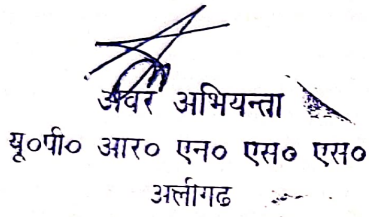 अवर अभियन्ता
यू०पी० आर० एन० एस० एस०
अलीगढ